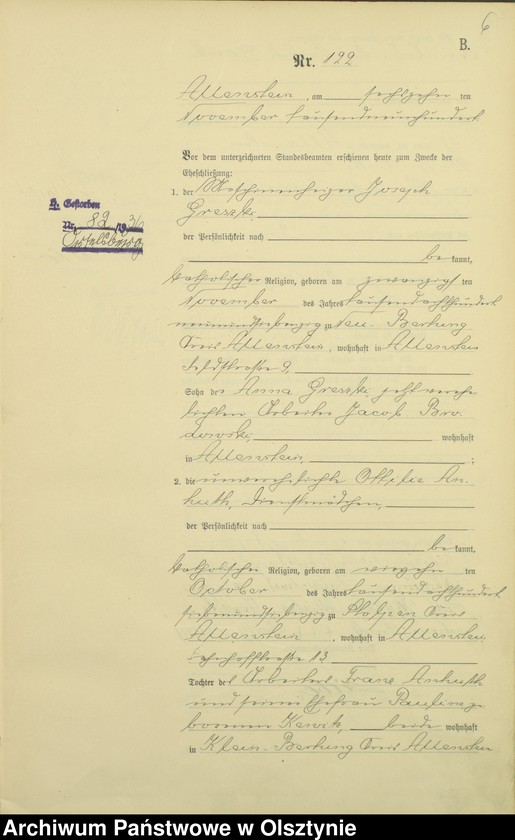 6
B.
Nr. 122
Allenstein, am sechszehn ten
November tausendneunhundert
Vor dem unterzeichneten Standesbeamten erschienen heute zum Zwecke der
Eheschließung:
1. der Maschinenheizer Joseph
Greszki
der Persönlichkeit nach
be kannt,
katholischer Religion, geboren am zwanzigsten
November des Jahres tausendachthundert
neunundsiebenzig zu Neu-Bertung
Kreis Allenstein, wohnhaft in Allenstein
Feldstraße 9,
Sohn der Anna Greszki jetzt verehe-
lichten Arbeiter Jacob Bro-
dowski, wohnhaft
in Allenstein, ;
2. die unverehelichte Ottilie An-
kuth, Dienstmädchen,
der Persönlichkeit nach
be kannt,
katholischer Religion, geboren am vierzehn ten
October des Jahres tausendachthundert
siebenundsiebenzig zu Stolpen Kreis
Allenstein, wohnhaft in Allenstein
Bahnhofstraße 13
Tochter des Arbeiters Franz Ankuth
und seiner Ehefrau Pauline ge-
borenen beide wohnhaft
in Klein-Bertung Kreis Allenstein
Gestorben
Nr. 82
Ortelsburg
Archiwum Państwowe w Olsztynie